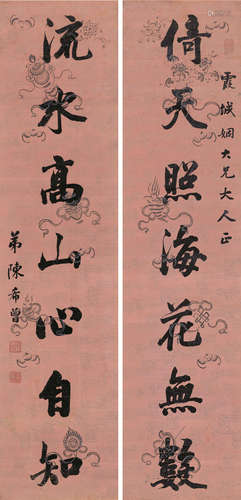 霞城姻大兄大人正
倚天照海花無數
流水高山心自知
弟陳希曾